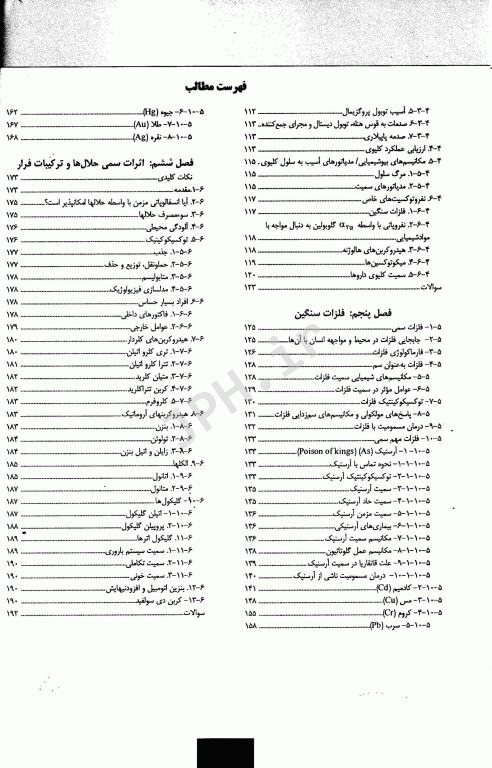 فهرست مطالب
۴-۳-۵. آسیب توبول پروگزیمال ۱۱۲
۴-۳-۶. صدمات به قوس هنله، توبول دیستال و مجرای جمع‌کننده ۱۱۳
۴-۳-۷. صدمه پاپیلاری ۱۱۳
۴-۴. ارزیابی عملکرد کلیوی ۱۱۳
۴-۵. مکانیسم‌های بیوشیمیایی/ مدیاتورهای آسیب به سلول کلیوی ۱۱۵
۴-۵-۱. مرگ سلول ۱۱۵
۴-۵-۲. مدیاتورهای سمیت ۱۱۵
۴-۶. نفروتوکسیت‌های خاص ۱۱۷
۴-۶-۱. فلزات سنگین ۱۱۷
۴-۶-۲. نفروپاتی با واسطه α₂ᵤ گلوبولین به دنبال مواجه با
موادشیمیایی ۱۱۸
۴-۶-۳. هیدروکربن‌های هالوژنه ۱۱۸
۴-۶-۴. میکوتوکسین‌ها ۱۱۹
۴-۶-۵. سمیت کلیوی داروها ۱۲۰
سوالات ۱۲۳
فصل پنجم: فلزات سنگین
۵-۱- فلزات سمی ۱۲۵
۵-۲- جابجایی فلزات در محیط و مواجهه انسان با آن‌ها ۱۲۵
۵-۳- فارماکولوژی فلزات ۱۲۶
۵-۴- فلزات به‌عنوان سم ۱۲۸
۵-۵- مکانیسم‌های شیمیایی سمیت فلزات ۱۲۸
۵-۶- عوامل مؤثر در سمیت فلزات ۱۲۹
۵-۷- توکسیکوکینتیک فلزات ۱۳۰
۵-۸- پاسخ‌های مولکولی و مکانیسم‌های سم‌زدایی فلزات ۱۳۱
۵-۹- درمان مسمومیت با فلزات ۱۳۲
۵-۱۰- فلزات مهم سمی ۱۳۳
۵-۱۰-۱- آرسنیک (As) (Poison of kings) ۱۳۳
۵-۱۰-۱-۱- نحوه تماس با آرسنیک ۱۳۳
۵-۱۰-۱-۲- توکسیکوکینتیک آرسنیک ۱۳۳
۵-۱۰-۱-۳- سمیت آرسنیک ۱۳۵
۵-۱۰-۱-۴- سمیت حاد آرسنیک ۱۳۵
۵-۱۰-۱-۵- سمیت مزمن آرسنیک ۱۳۶
۵-۱۰-۱-۶- بیماری‌های آرسنیکی ۱۳۶
۵-۱۰-۱-۷- مکانیسم سمیت آرسنیک ۱۳۶
۵-۱۰-۱-۸- مکانیسم عمل گلوتاتیون ۱۳۸
۵-۱۰-۱-۹- علت قانقاریا در سمیت آرسنیک ۱۳۹
۵-۱۰-۱-۱۰- درمان مسمومیت ناشی از آرسنیک ۱۴۰
۵-۱۰-۲- کادمیم (Cd) ۱۴۱
۵-۱۰-۳- مس (Cu) ۱۴۸
۵-۱۰-۴- کروم (Cr) ۱۵۵
۵-۱۰-۵- سرب (Pb) ۱۵۸
۵-۱۰-۶- جیوه (Hg) ۱۶۲
۵-۱۰-۷- طلا (Au) ۱۶۷
۵-۱۰-۸- نقره (Ag) ۱۶۸
فصل ششم: اثرات سمی حلال‌ها و ترکیبات فرار
نکات کلیدی ۱۷۳
۶-۱. مقدمه ۱۷۳
۶-۲. آیا انسفالوپاتی مزمن با واسطه حلالها امکانپذیر است؟ ۱۷۵
۶-۳. سوءمصرف حلالها ۱۷۵
۶-۴. آلودگی محیطی ۱۷۶
۶-۵. توکسیکوکینتیک ۱۷۶
۶-۵-۱. جذب ۱۷۷
۶-۵-۲. حمل‌ونقل، توزیع و حذف ۱۷۷
۶-۵-۳. متابولیسم ۱۷۸
۶-۵-۴. مدلسازی فیزیولوژیک ۱۷۸
۶-۶. افراد بسیار حساس ۱۷۸
۶-۶-۱. فاکتورهای داخلی ۱۷۸
۶-۶-۲. عوامل خارجی ۱۷۹
۶-۷. هیدروکربن‌های کلردار ۱۸۰
۶-۷-۱. تری کلرو اتیلن ۱۸۰
۶-۷-۲. تتراکلرو اتیلن ۱۸۱
۶-۷-۳. متیلن کلرید ۱۸۲
۶-۷-۴. کربن تتراکلرید ۱۸۲
۶-۷-۵. کلروفرم ۱۸۳
۶-۸. هیدروکربنهای آروماتیک ۱۸۳
۶-۸-۱. بنزن ۱۸۳
۶-۸-۲. تولوئن ۱۸۴
۶-۸-۳. زایلن و اتیل بنزن ۱۸۴
۶-۹. الکلها ۱۸۵
۶-۹-۱. اتانول ۱۸۵
۶-۹-۲. متانول ۱۸۷
۶-۱۰. گلیکول‌ها ۱۸۷
۶-۱۰-۱. اتیلن گلیکول ۱۸۷
۶-۱۰-۲. پروپیلن گلیکول ۱۸۸
۶-۱۱. گلیکول اترها ۱۸۹
۶-۱۱-۱. سمیت سیستم باروری ۱۸۹
۶-۱۱-۲. سمیت تکاملی ۱۹۰
۶-۱۱-۳. سمیت خونی ۱۹۰
۶-۱۲. بنزین اتومبیل و افزودنیهایش ۱۹۰
۶-۱۳. کربن دی سولفید ۱۹۰
سوالات ۱۹۲